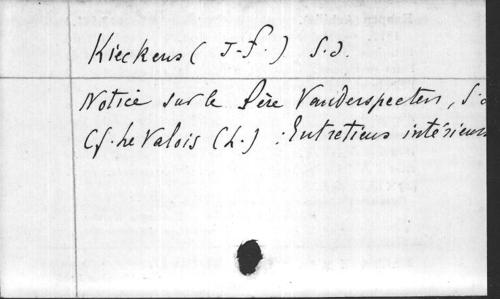 Kieckens (J-F.) S.J.
Notice sur le Père Vanderspecten, S.J
Cf. Le Valois (L.) : Entretiens intérieurs